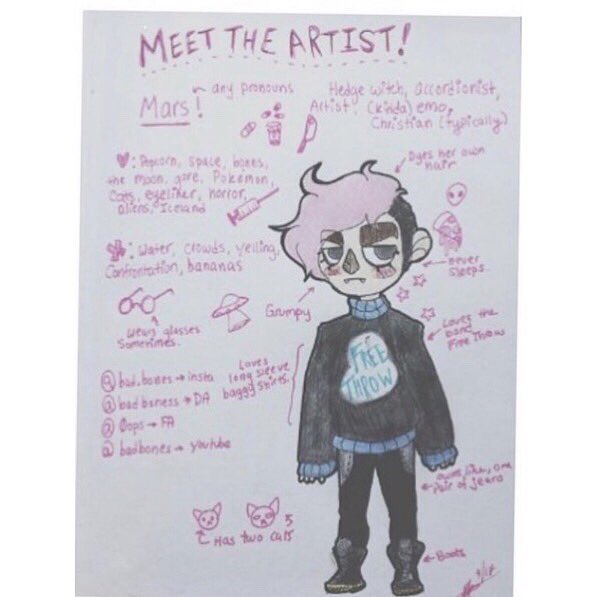 MEET THE ARTIST!
Mars!
any pronouns
Hedge witch, accordionist,
Artist, (kinda) emo,
Christian (typically)
: Popcorn, space, bones,
the moon, gore, Pokemon,
Cats, eyeliner, horror,
aliens, Iceland
: Water, crowds, yelling,
Confrontation, bananas
Dyes her own
hair
never
sleeps
Grumpy
wears glasses
Sometimes.
Loves the
band
Free Throw
Loves
long sleeve
baggy shirts.
FREE
THROW
@ bad.bones → insta
@ badboness → DA
@ Oops → FA
@ badbones → youtube
owns like, one
pair of jeans
Has two cats
Boots
9/18